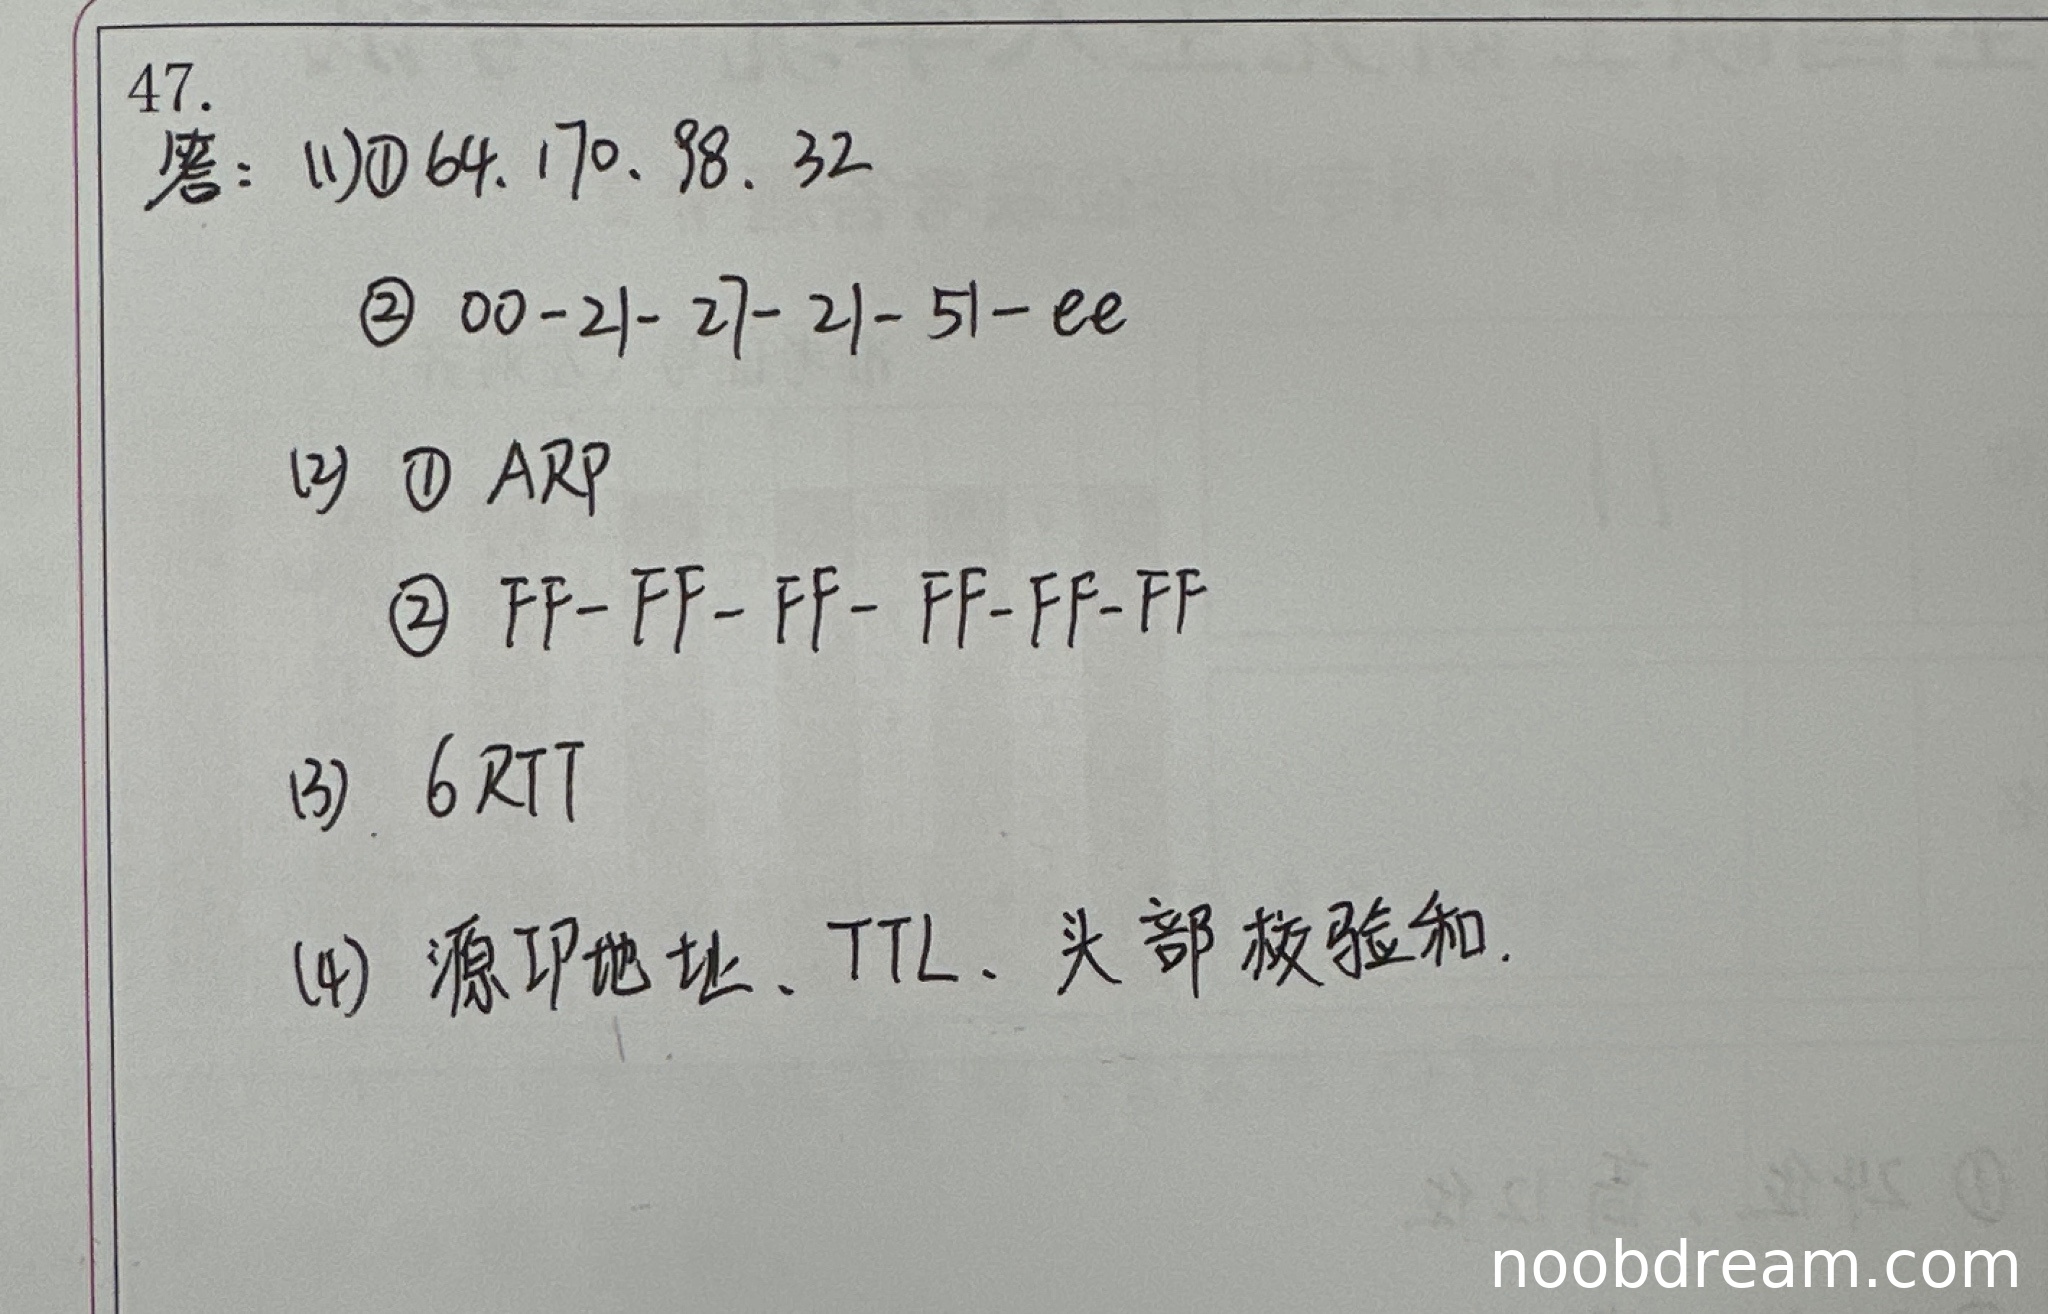 47.
答：(1)① 64.170.98.32
② 00-21-27-21-51-ee
(2) ① ARP
② FF-FF-FF-FF-FF-FF
(3) 6RTT
(4) 源IP地址、TTL、头部校验和.
① 24位，高12位
noobdream.com